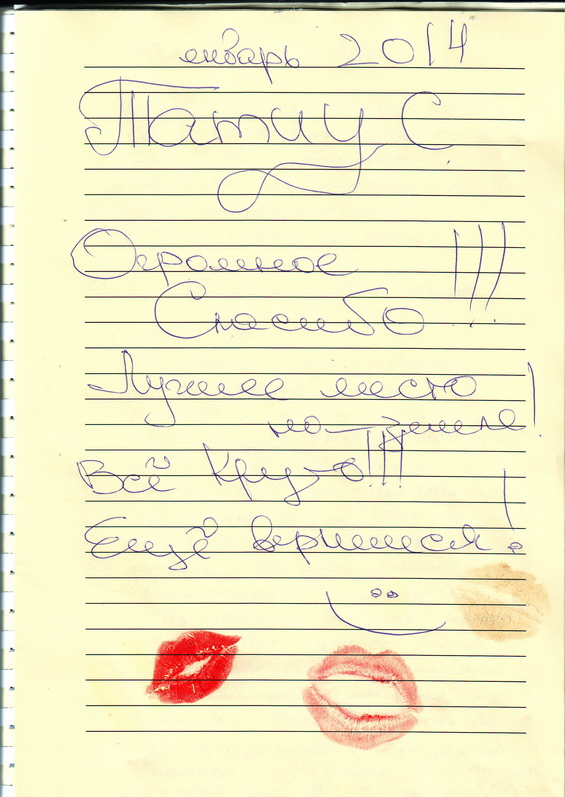 январь 2014
Татищ С
Огромное !!!
Спасибо
Лучшее место
на земле!
Всё круто!!!
Ещё вернемся!